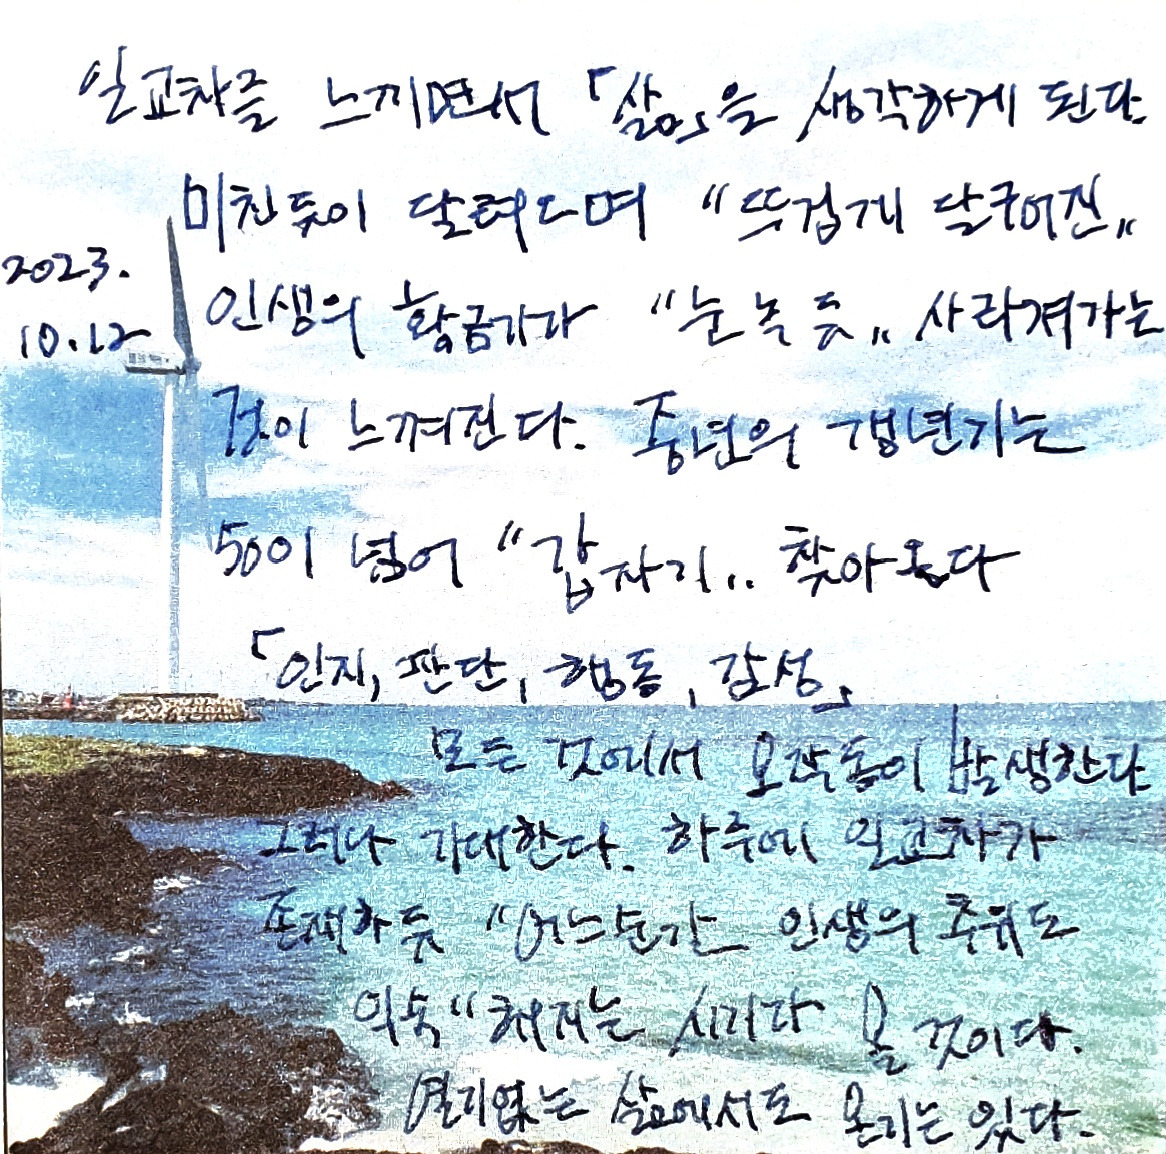 일교차를 느끼면서 「삶」을 생각하게 된다.
미친듯이 달려오며 "뜨겁게 달구어진"
2023.
10.12
인생의 황금기가 "눈 녹 듯" 사라져가는
것이 느껴진다. 중년의 갱년기는
50이 넘어 "갑자기.. 찾아온다
「인지, 판단, 행동, 감성」
모든 것에서 오작동이 발생한다
그러나 기대한다. 하루에 일교차가
존재하듯 "어느순간 인생의 추위도
익숙"해지는 시기가 올 것이다.
열기없는 삶에서도 온기는 있다.